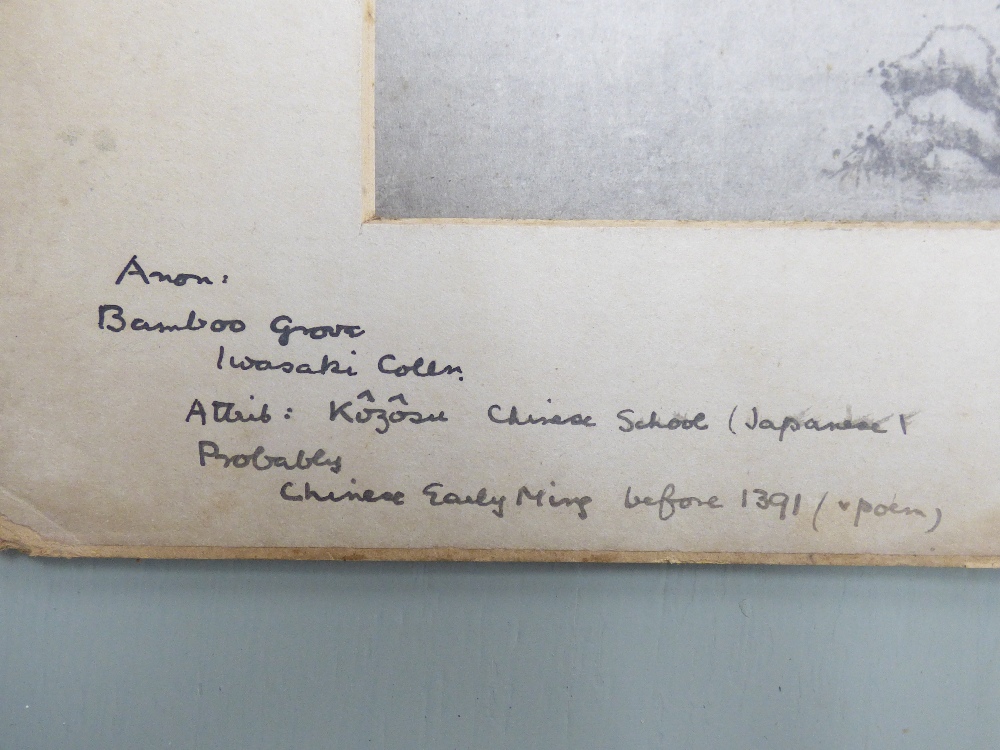 Anon:
Bamboo Grove
Iwasaki Colln.
Attrib: Kôzôsu Chinese School (Japanese?
Probably
Chinese Early Ming before 1391 (v poem)